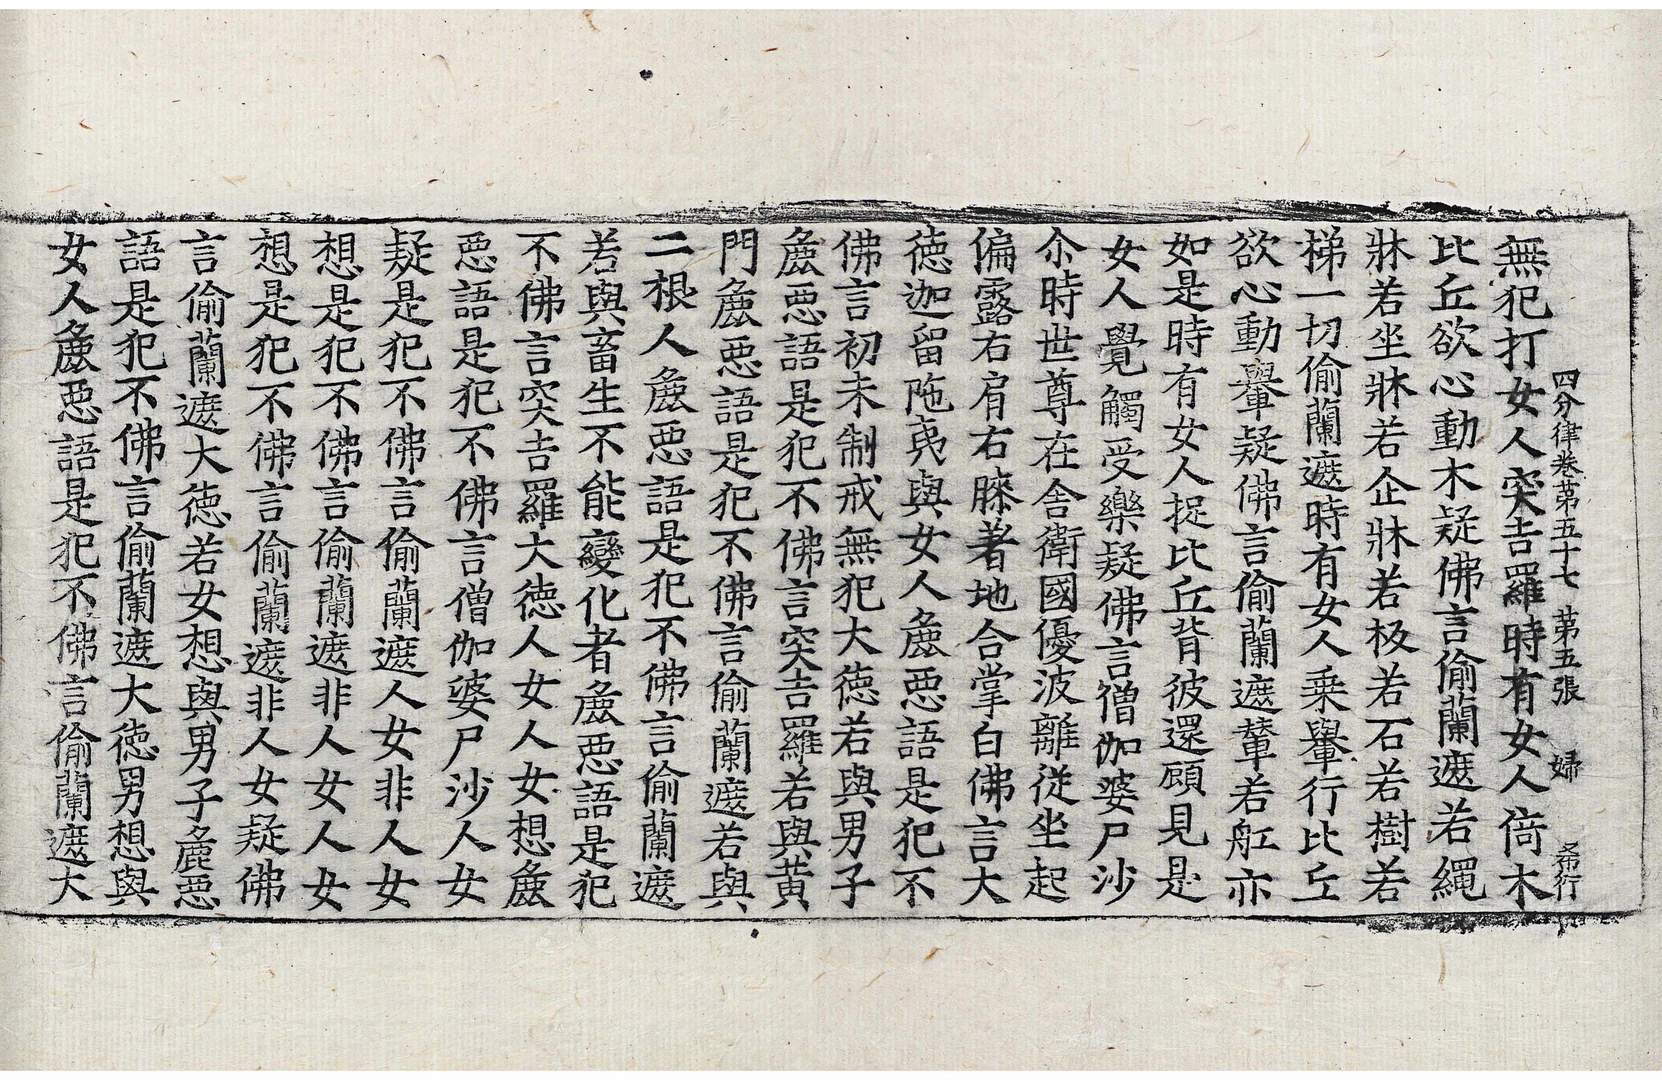 四分律卷第五十七 第五張 婦 希行
無犯打女人突吉羅時有女人倚木
比丘欲心動木疑佛言偷蘭遮若繩
牀若坐牀若企牀若板若石若樹若
梯一切偷蘭遮時有女人乗轝行比丘
欲心動轝疑佛言偷蘭遮輦若舡亦
如是時有女人捉比丘背彼還顧見是
女人覺觸受樂疑佛言僧伽婆尸沙
尒時世尊在舍衛國優波離從坐起
偏露右肩右膝著地合掌白佛言大
徳迦留陁夷與女人麁惡語是犯不
佛言初未制戒無犯大徳若與男子
麁惡語是犯不佛言突吉羅若與黃
門麁惡語是犯不佛言偷蘭遮若與
二根人麁惡語是犯不佛言偷蘭遮
若與畜生不能變化者麁惡語是犯
不佛言突吉羅大徳人女人女想麁
惡語是犯不佛言僧伽婆尸沙人女
疑是犯不佛言偷蘭遮人女非人女
想是犯不佛言偷蘭遮非人女人女
想是犯不佛言偷蘭遮非人女疑佛
言偷蘭遮大徳若女想與男子麁惡
語是犯不佛言偷蘭遮大徳男想與
女人麁惡語是犯不佛言偷蘭遮大